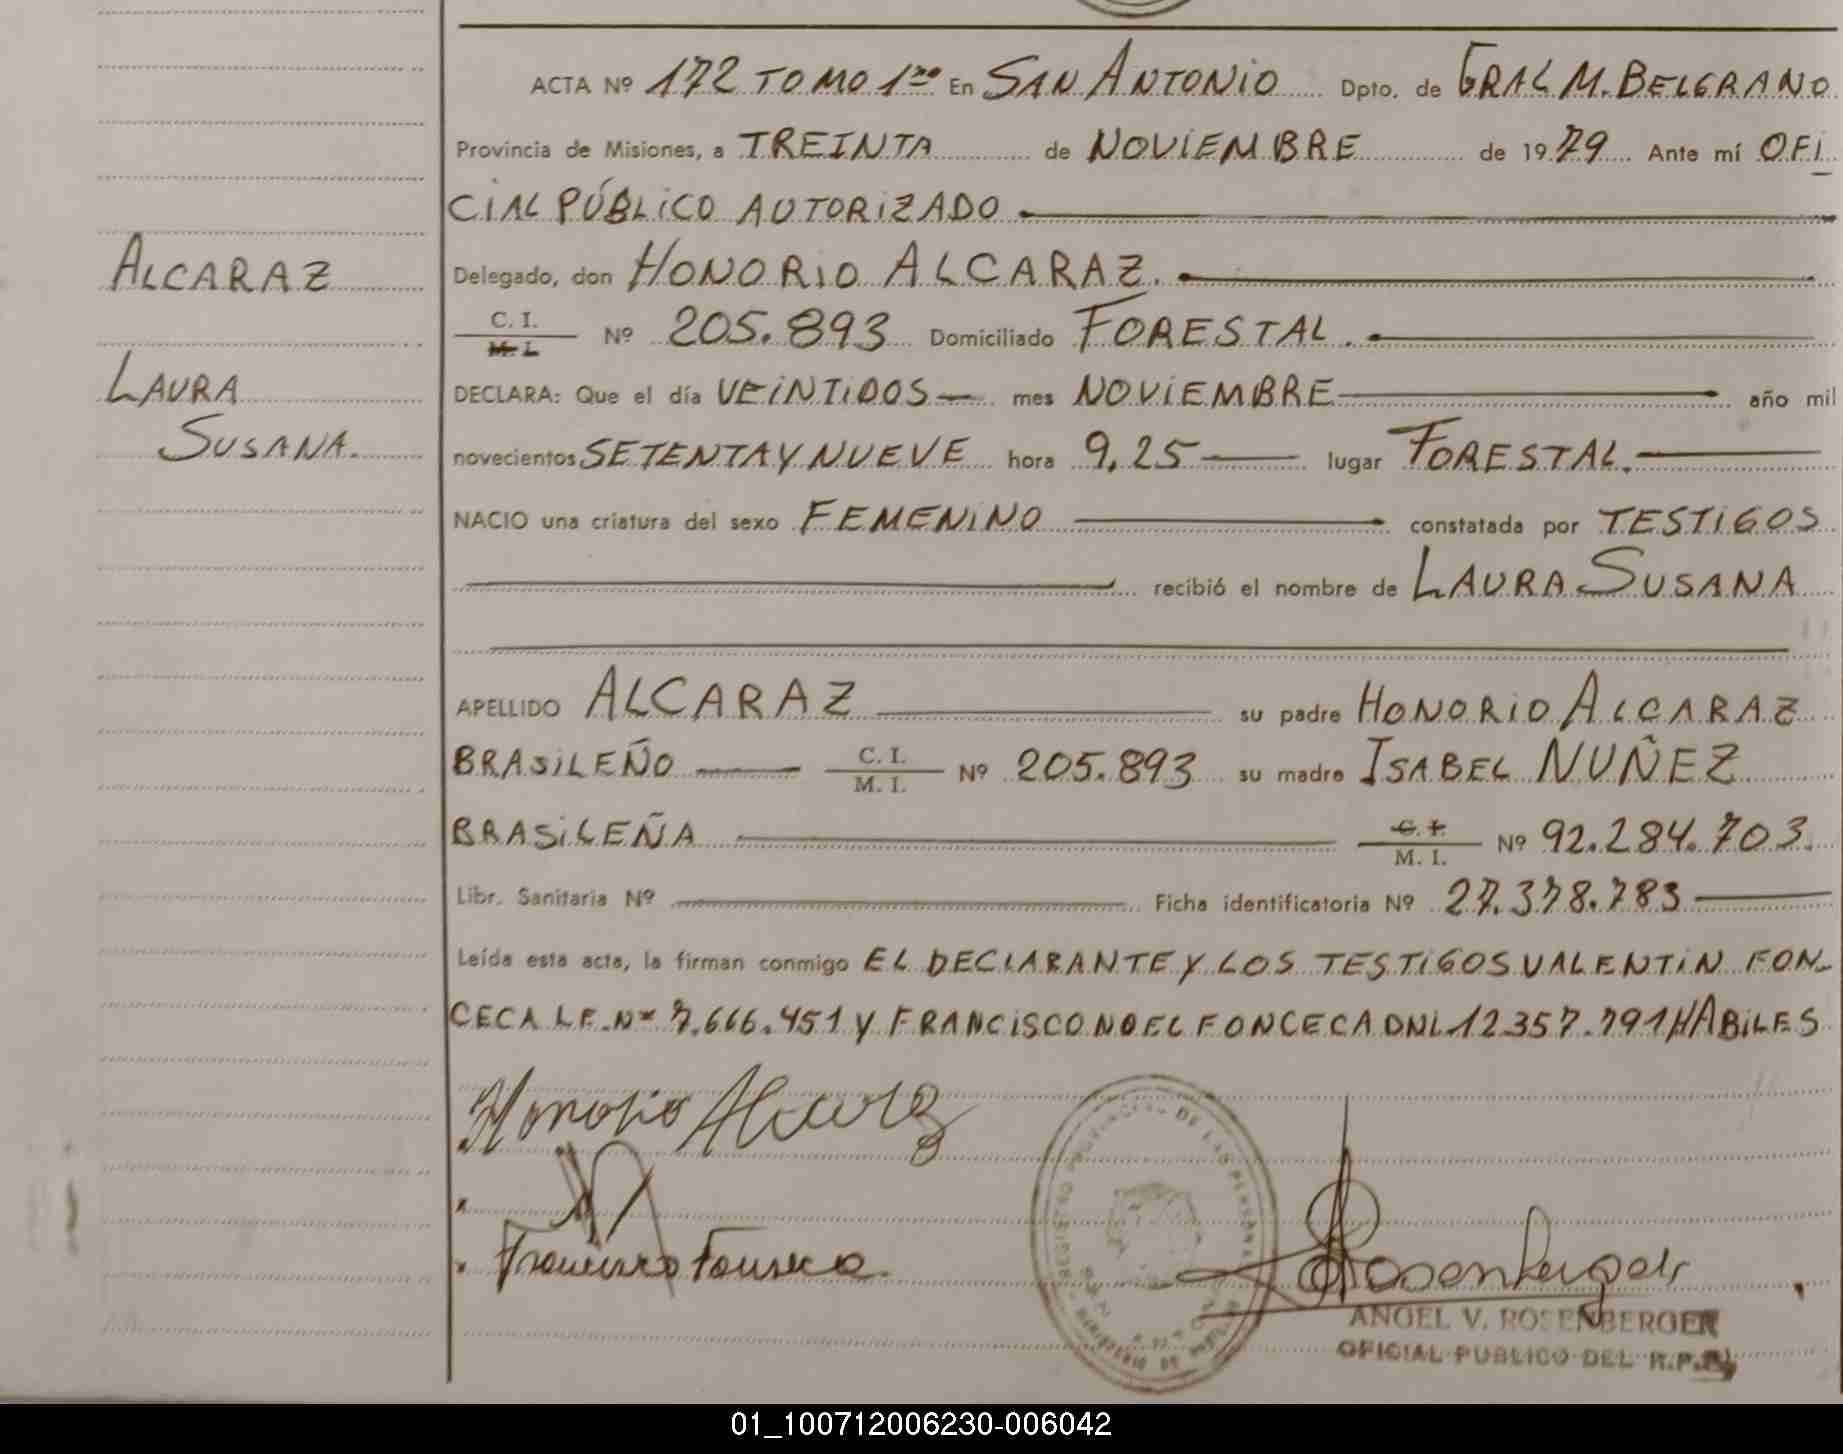 ACTA Nº 172 TOMO 1ro En SAN ANTONIO Dpto. de GRAL M. BELGRANO
Provincia de Misiones, a TREINTA de NOVIEMBRE de 1979 Ante mí OFI
CIAL PÚBLICO AUTORIZADO
Delegado, don HONORIO ALCARAZ.
C. I.
M. I. Nº 205.893 Domiciliado FORESTAL.
DECLARA: Que el día VEINTIDOS mes NOVIEMBRE año mil
novecientos SETENTA Y NUEVE hora 9,25 lugar FORESTAL.
NACIO una criatura del sexo FEMENINO constatada por TESTIGOS
recibió el nombre de LAURA SUSANA
APELLIDO ALCARAZ su padre HONORIO ALCARAZ
BRASILEÑO C. I. M. I. Nº 205.893 su madre ISABEL NUÑEZ
BRASILEÑA C. I. M. I. Nº 92.284.703.
Libr. Sanitaria Nº Ficha identificatoria Nº 27.378.783
Leída esta acta, la firman conmigo EL DECLARANTE Y LOS TESTIGOS VALENTIN FON-
CECA L.E. Nº 7.666.451 Y FRANCISCO NOEL FONCECA DNI 12.357.791 HABILES
ALCARAZ
LAURA
SUSANA.
Honorio Alcaraz
Francisco Fonseca
Rosenberger
ANGEL V. ROSENBERGER
OFICIAL PUBLICO DEL R.P.P.
REGISTRO PROVINCIAL DE LAS PERSONAS
01_100712006230-006042